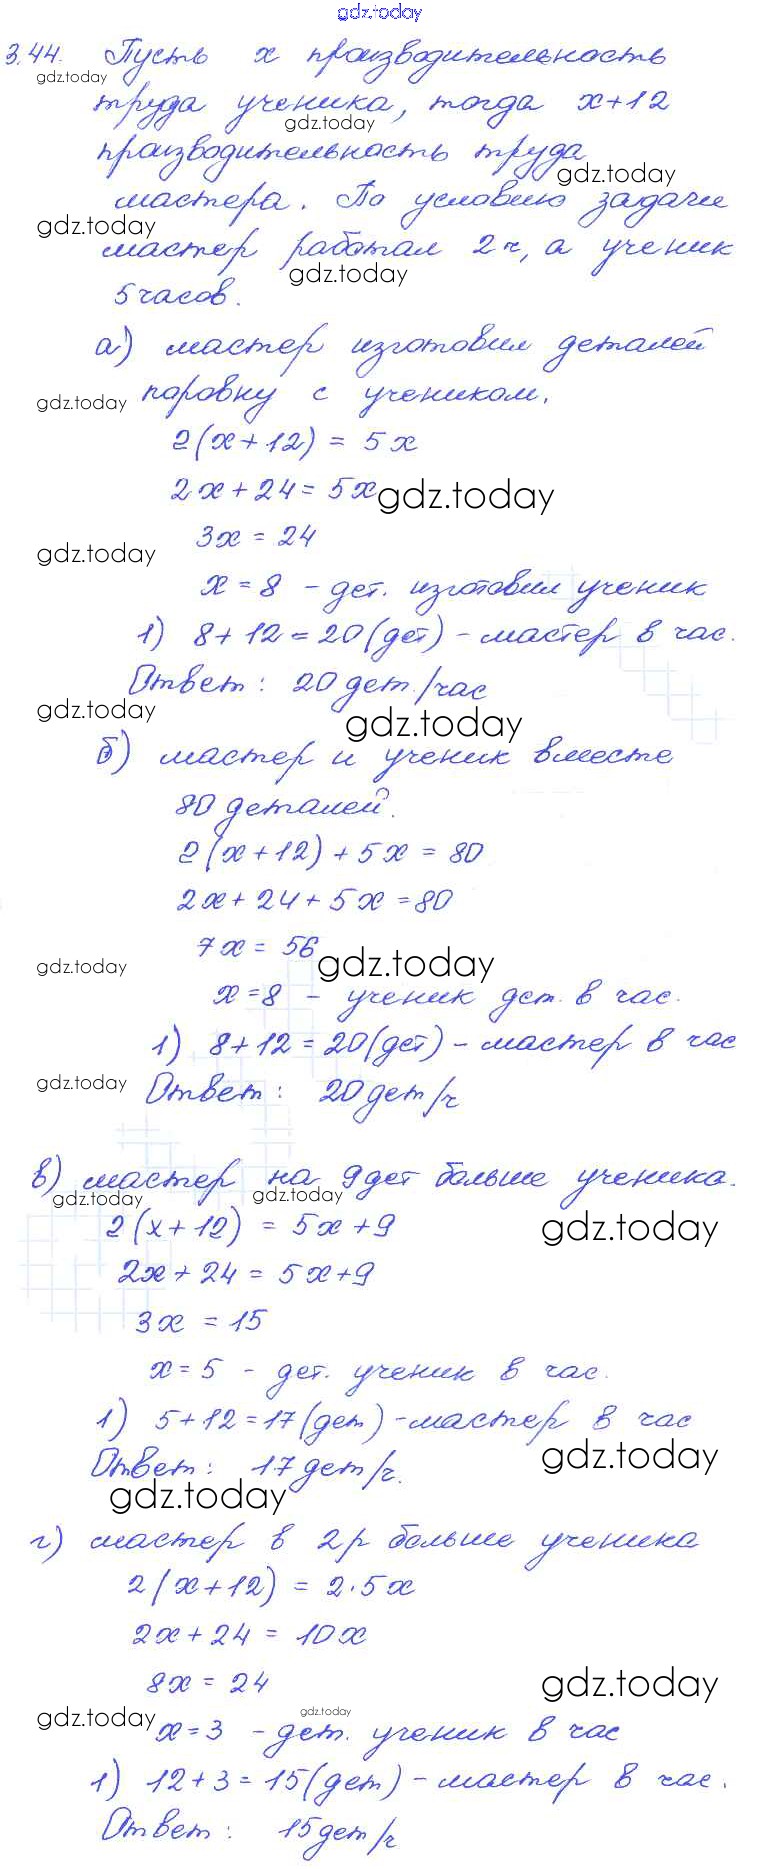 gdz.today
3.44. Пусть x производительность
gdz.today
труда ученика, тогда x+12
gdz.today
производительность труда
gdz.today
мастера. По условию задачи
gdz.today
мастер работал 2 ч, а ученик
gdz.today
5 часов.
а) мастер изготовил деталей
gdz.today
поровну с учеником.
2(x+12) = 5x
2x+24 = 5x
gdz.today
3x = 24
gdz.today
x = 8 - дет. изготовил ученик
1) 8+12=20(дет) - мастер в час.
Ответ: 20 дет/час
gdz.today
gdz.today
б) мастер и ученик вместе
80 деталей.
2(x+12)+5x = 80
2x+24+5x = 80
7x = 56
gdz.today
gdz.today
x=8 - ученик дет. в час.
1) 8+12=20(дет) - мастер в час
gdz.today
Ответ: 20 дет/ч
в) мастер на 9 дет больше ученика.
gdz.today
gdz.today
2(x+12) = 5x+9
gdz.today
2x+24 = 5x+9
3x = 15
x=5 - дет. ученик в час.
1) 5+12=17(дет) - мастер в час
Ответ: 17 дет/ч.
gdz.today
gdz.today
г) мастер в 2р больше ученика
2(x+12) = 2·5x
2x+24 = 10x
8x = 24
gdz.today
gdz.today
gdz.today
x=3 - дет. ученик в час
1) 12+3=15(дет) - мастер в час.
Ответ: 15 дет/ч